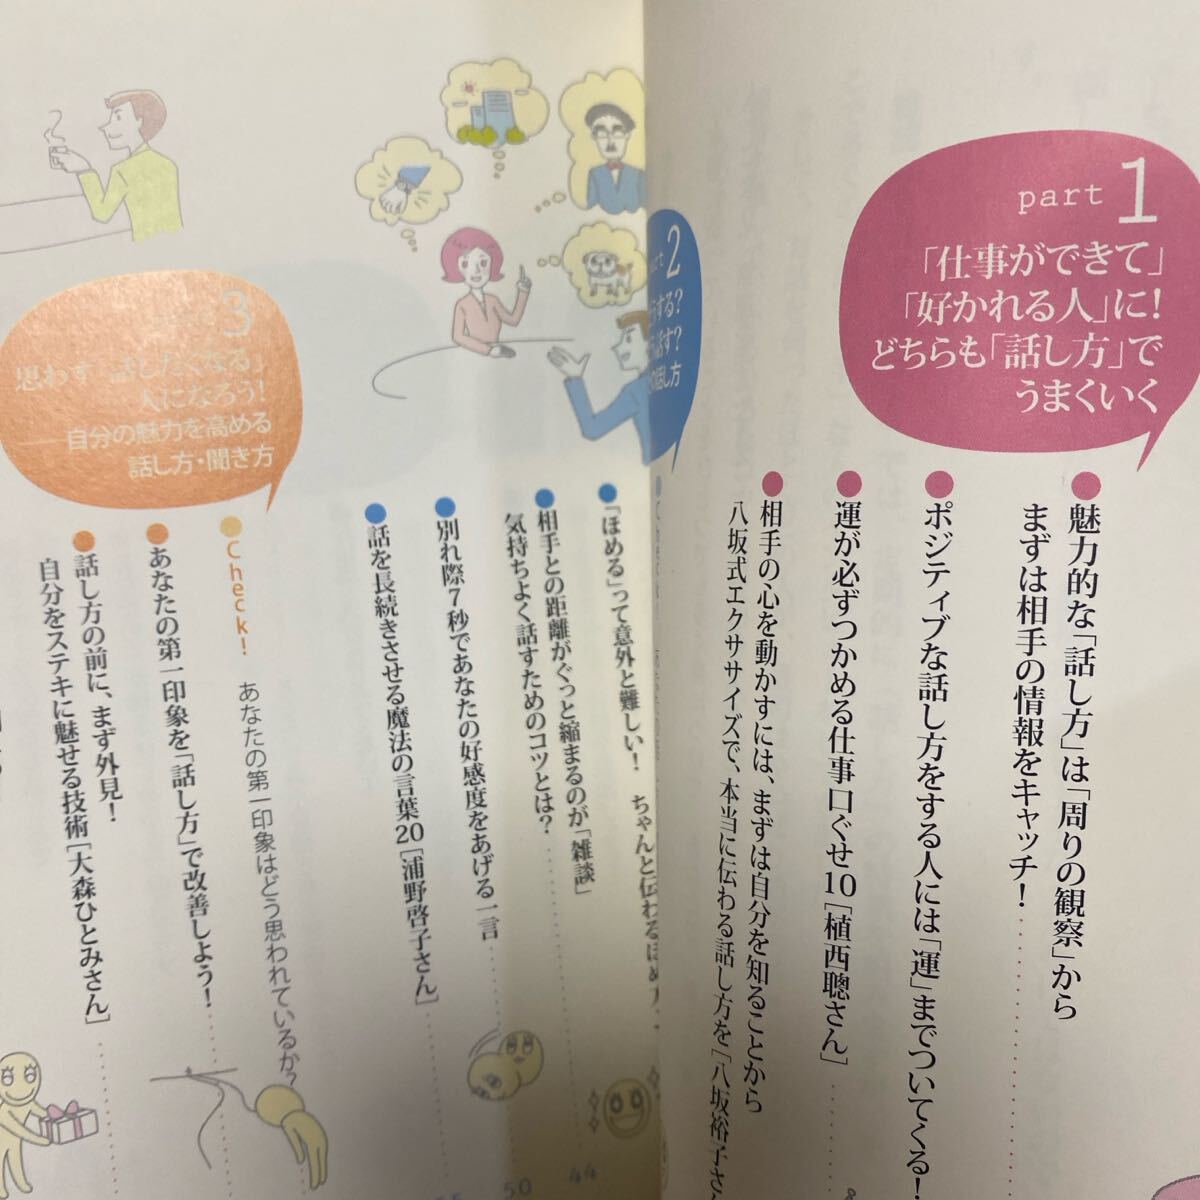 part 1
「仕事ができて」
「好かれる人」に!
どちらも「話し方」で
うまくいく
●魅力的な「話し方」は「周りの観察」から
まずは相手の情報をキャッチ!
●ポジティブな話し方をする人には「運」までついてくる!
●運が必ずつかめる仕事口ぐせ10[植西聰さん]
●相手の心を動かすには、まずは自分を知ることから
八坂式エクササイズで、本当に伝わる話し方を[八坂裕子さ
2
する?
話す?
話し方
●「ほめる」って意外と難しい! ちゃんと伝わるほめ方
●相手との距離がぐっと縮まるのが「雑談」
気持ちよく話すためのコツとは?
●別れ際7秒であなたの好感度をあげる一言
●話を長続きさせる魔法の言葉20[浦野啓子さん]
44
50
3
思わず「話したくなる」
人になろう!
──自分の魅力を高める
話し方・聞き方
●Check! あなたの第一印象はどう思われているか?
●あなたの第一印象を「話し方」で改善しよう!
●話し方の前に、まず外見!
自分をステキに魅せる技術[大森ひとみさん]